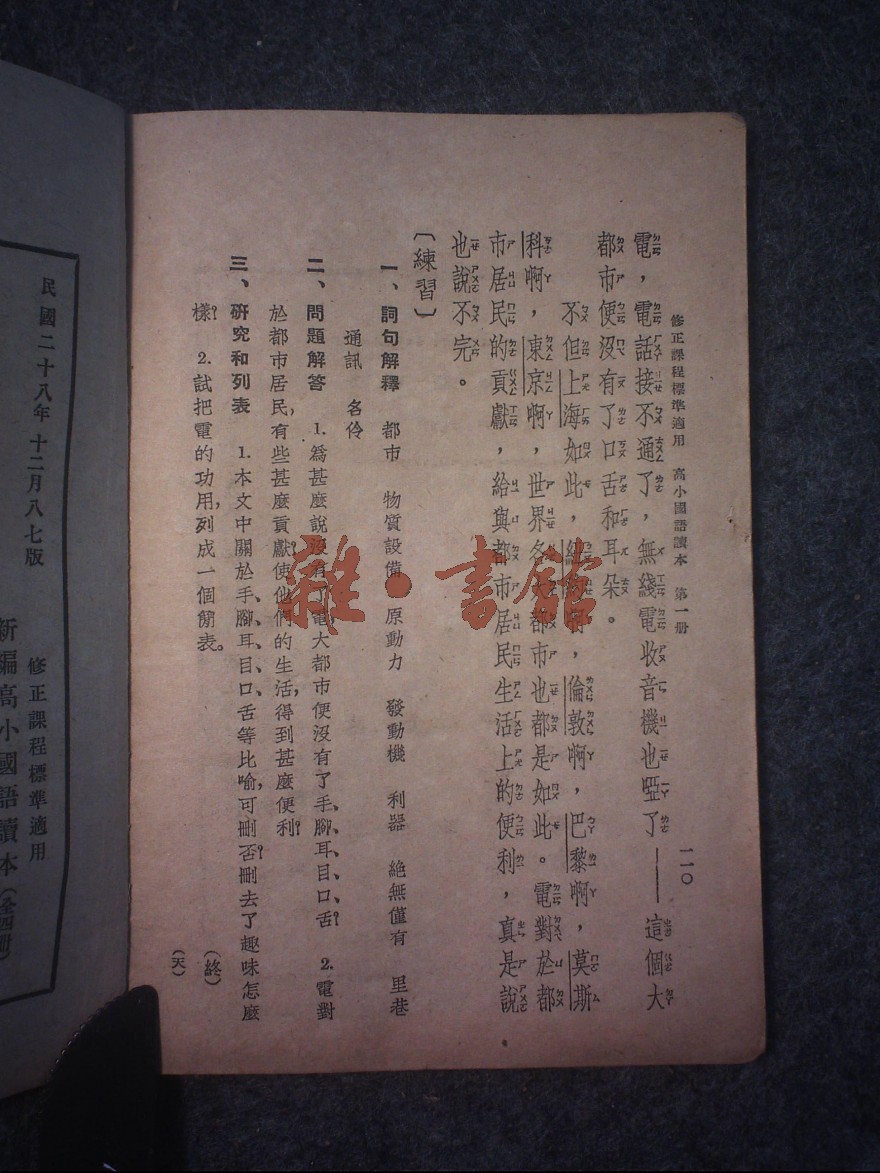 修正課程標準適用　高小國語讀本　第一册
二一〇
電，電話接不通了，無綫電收音機也啞了——這個大
都市便沒有了口舌和耳朵。
不但上海如此，紐約啊，倫敦啊，巴黎啊，莫斯
科啊，東京啊，世界各大都市也都是如此。電對於都
市居民的貢獻，給與都市居民生活上的便利，真是說
也說不完。
〔練習〕
一、詞句解釋　都市　物質設備　原動力　發動機　利器　絕無僅有　里巷
通訊　名伶
二、問題解答　1.爲甚麼說沒有了電大都市便沒有了手、腳、耳、目、口、舌？　2.電對
於都市居民，有些甚麼貢獻？使他們的生活，得到甚麼便利？
三、研究和列表　1.本文中關於手、腳、耳、目、口、舌等比喻，可刪否？刪去了趣味怎麼
樣？　2.試把電的功用，列成一個簡表。
（終）
（天）
民國二十八年十二月八七版
修正課程標準適用
新編高小國語讀本（全四册）
雜·書館